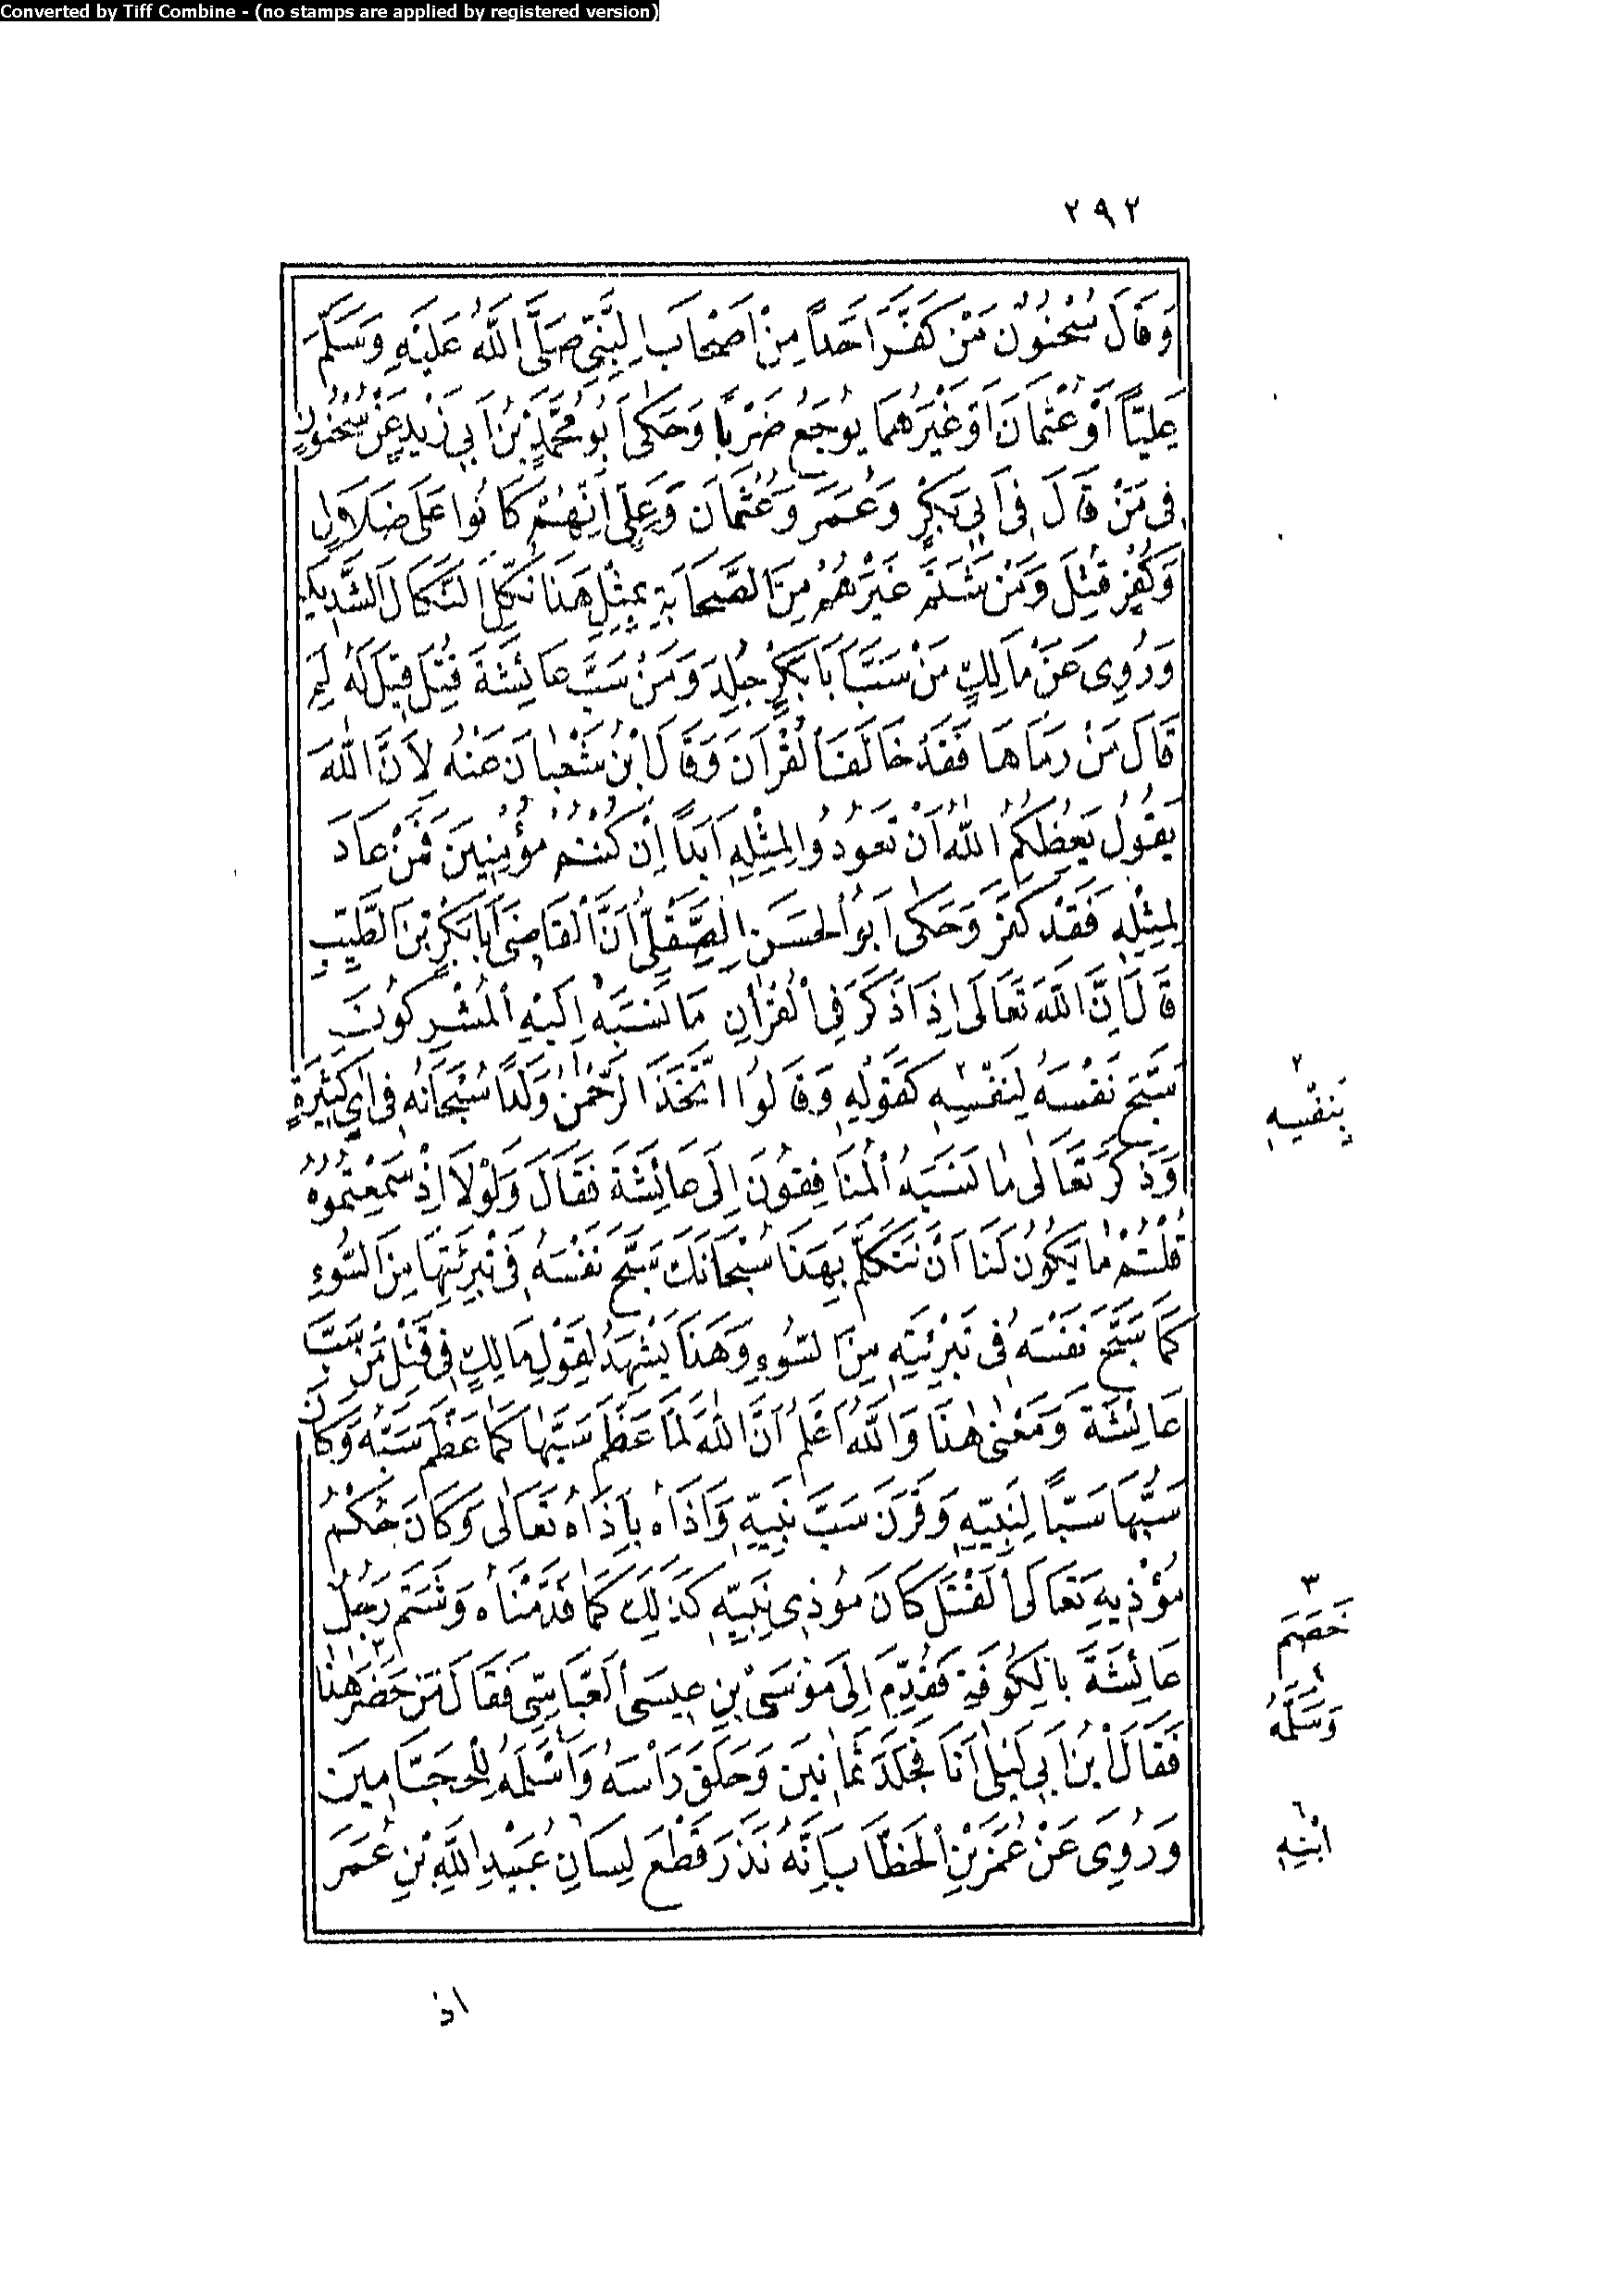 Converted by Tiff Combine - (no stamps are applied by registered version)
٢٩٢
وَقَالَ سُحْنُوُنْ مَنْ كَفَّرَ اَحَداً مِنْ اَصْحَابِ النَّبِيِّ صَلَّى اللّٰهُ عَلَيْهِ وَسَلَّمَ
عَلِيّاً اَوْ عُثْمَانَ اَوْ غَيْرَهُمَا يُوجَعُ ضَرْبًا وَحَكٰى اَبُو مُحَمَّدِ بْنُ اَبِى زَيْدٍ عَنْ سُحْنُونٍ
فِى مَنْ قَالَ فِى اَبِى بَكْرٍ وَعُمَرَ وَعُثْمَانَ وَعَلِىٍّ اِنَّهُمْ كَانُوا عَلَى ضَلَالٍ
وَكُفْرٍ قُتِلَ وَمَنْ شَتَمَ غَيْرَهُمْ مِنَ الصَّحَابَةِ بِمِثْلِ هَذَا نُكِّلَ النَّكَالَ الشَّدِيدَ
وَرُوِىَ عَنْ مَالِكٍ مَنْ سَبَّ اَبَا بَكْرٍ جُلِدَ وَمَنْ سَبَّ عَائِشَةَ قُتِلَ قِيلَ لَهُ لِمَ
قَالَ مَنْ رَمَاهَا فَقَدْ خَالَفَ الْقُرْاٰنَ وَقَالَ ابْنُ شَعْبَانَ عَنْهُ لِاَنَّ اللّٰهَ
يَقُولُ يَعِظُكُمُ اللّٰهُ اَنْ تَعُودُوا لِمِثْلِهِ اَبَدًا اِنْ كُنْتُمْ مُؤْمِنِينَ فَمَنْ عَادَ
لِمِثْلِهِ فَقَدْ كَفَرَ وَحَكٰى اَبُو الْحَسَنِ الصَّقَلِّىُّ اَنَّ الْقَاضِىَ اَبَا بَكْرِ بْنَ الطَّيِّبِ
قَالَ اِنَّ اللّٰهَ تَعَالَى اِذَا ذَكَرَ فِى الْقُرْاٰنِ مَا نَسَبَهُ اِلَيْهِ الْمُشْرِكُونَ
سَبَّحَ نَفْسَهُ لِنَفْسِهِ ٢ كَقَوْلِهِ وَقَالُوا اتَّخَذَ الرَّحْمٰنُ وَلَدًا سُبْحَانَهُ فِى اٰىٍ كَثِيرَةٍ
٢
بِنَفْسِهِ
وَذَكَرَ تَعَالٰى مَا نَسَبَهُ الْمُنَافِقُونَ اِلَى عَائِشَةَ فَقَالَ وَلَوْلَا اِذْ سَمِعْتُمُوهُ
قُلْتُمْ مَا يَكُونُ لَنَا اَنْ نَتَكَلَّمَ بِهَذَا سُبْحَانَكَ سَبَّحَ نَفْسَهُ فِى تَبْرِئَتِهَا مِنَ السُّوءِ
كَمَا سَبَّحَ نَفْسَهُ فِى تَبْرِئَتِهِ مِنَ السُّوءِ وَهَذَا يَشْهَدُ لِقَوْلِ مَالِكٍ فِى قَتْلِ مَنْ سَبَّ
عَائِشَةَ وَمَعْنٰى هٰذَا وَاللّٰهُ اَعْلَمُ اَنَّ اللّٰهَ لَمَّا عَظَّمَ سَبَّهَا كَمَا عَظَّمَ سَبَّهُ وَكَانَ
سَبُّهَا سَبّاً لِنَبِيِّهِ وَقَرَنَ سَبَّ نَبِيِّهِ وَاَذَاهُ بِاَذَاهُ تَعَالٰى وَكَانَ حُكْمُ
مُؤْذِيهِ تَعَالَى الْقَتْلَ كَانَ مُؤْذِى نَبِيِّهِ كَذَلِكَ كَمَا قَدَّمْنَاهُ وَشَتَمَ رَجُلٌ
٣
خَصَمَ
عَائِشَةَ بِالْكُوفَةِ فَقُدِّمَ اِلَى مُوسَى بْنِ عِيسَى الْعَبَّاسِىِّ فَقَالَ مَنْ حَضَرَ ٣ هٰذَا
٤
وَسَلَّمَهُ
فَقَالَ ابْنُ اَبِى لَيْلٰى اَنَا فَجُلِدَ ثَمَانِينَ وَحَلَقَ رَاْسَهُ وَاَسْلَمَهُ لِلْحَجَّامِينَ
٦
اِبْنِهِ
وَرُوِىَ عَنْ عُمَرَ بْنِ الْخَطَّابِ اَنَّهُ نَذَرَ قَطْعَ لِسَانِ ٦ عُبَيْدِ اللّٰهِ بْنِ عُمَرَ
اذ